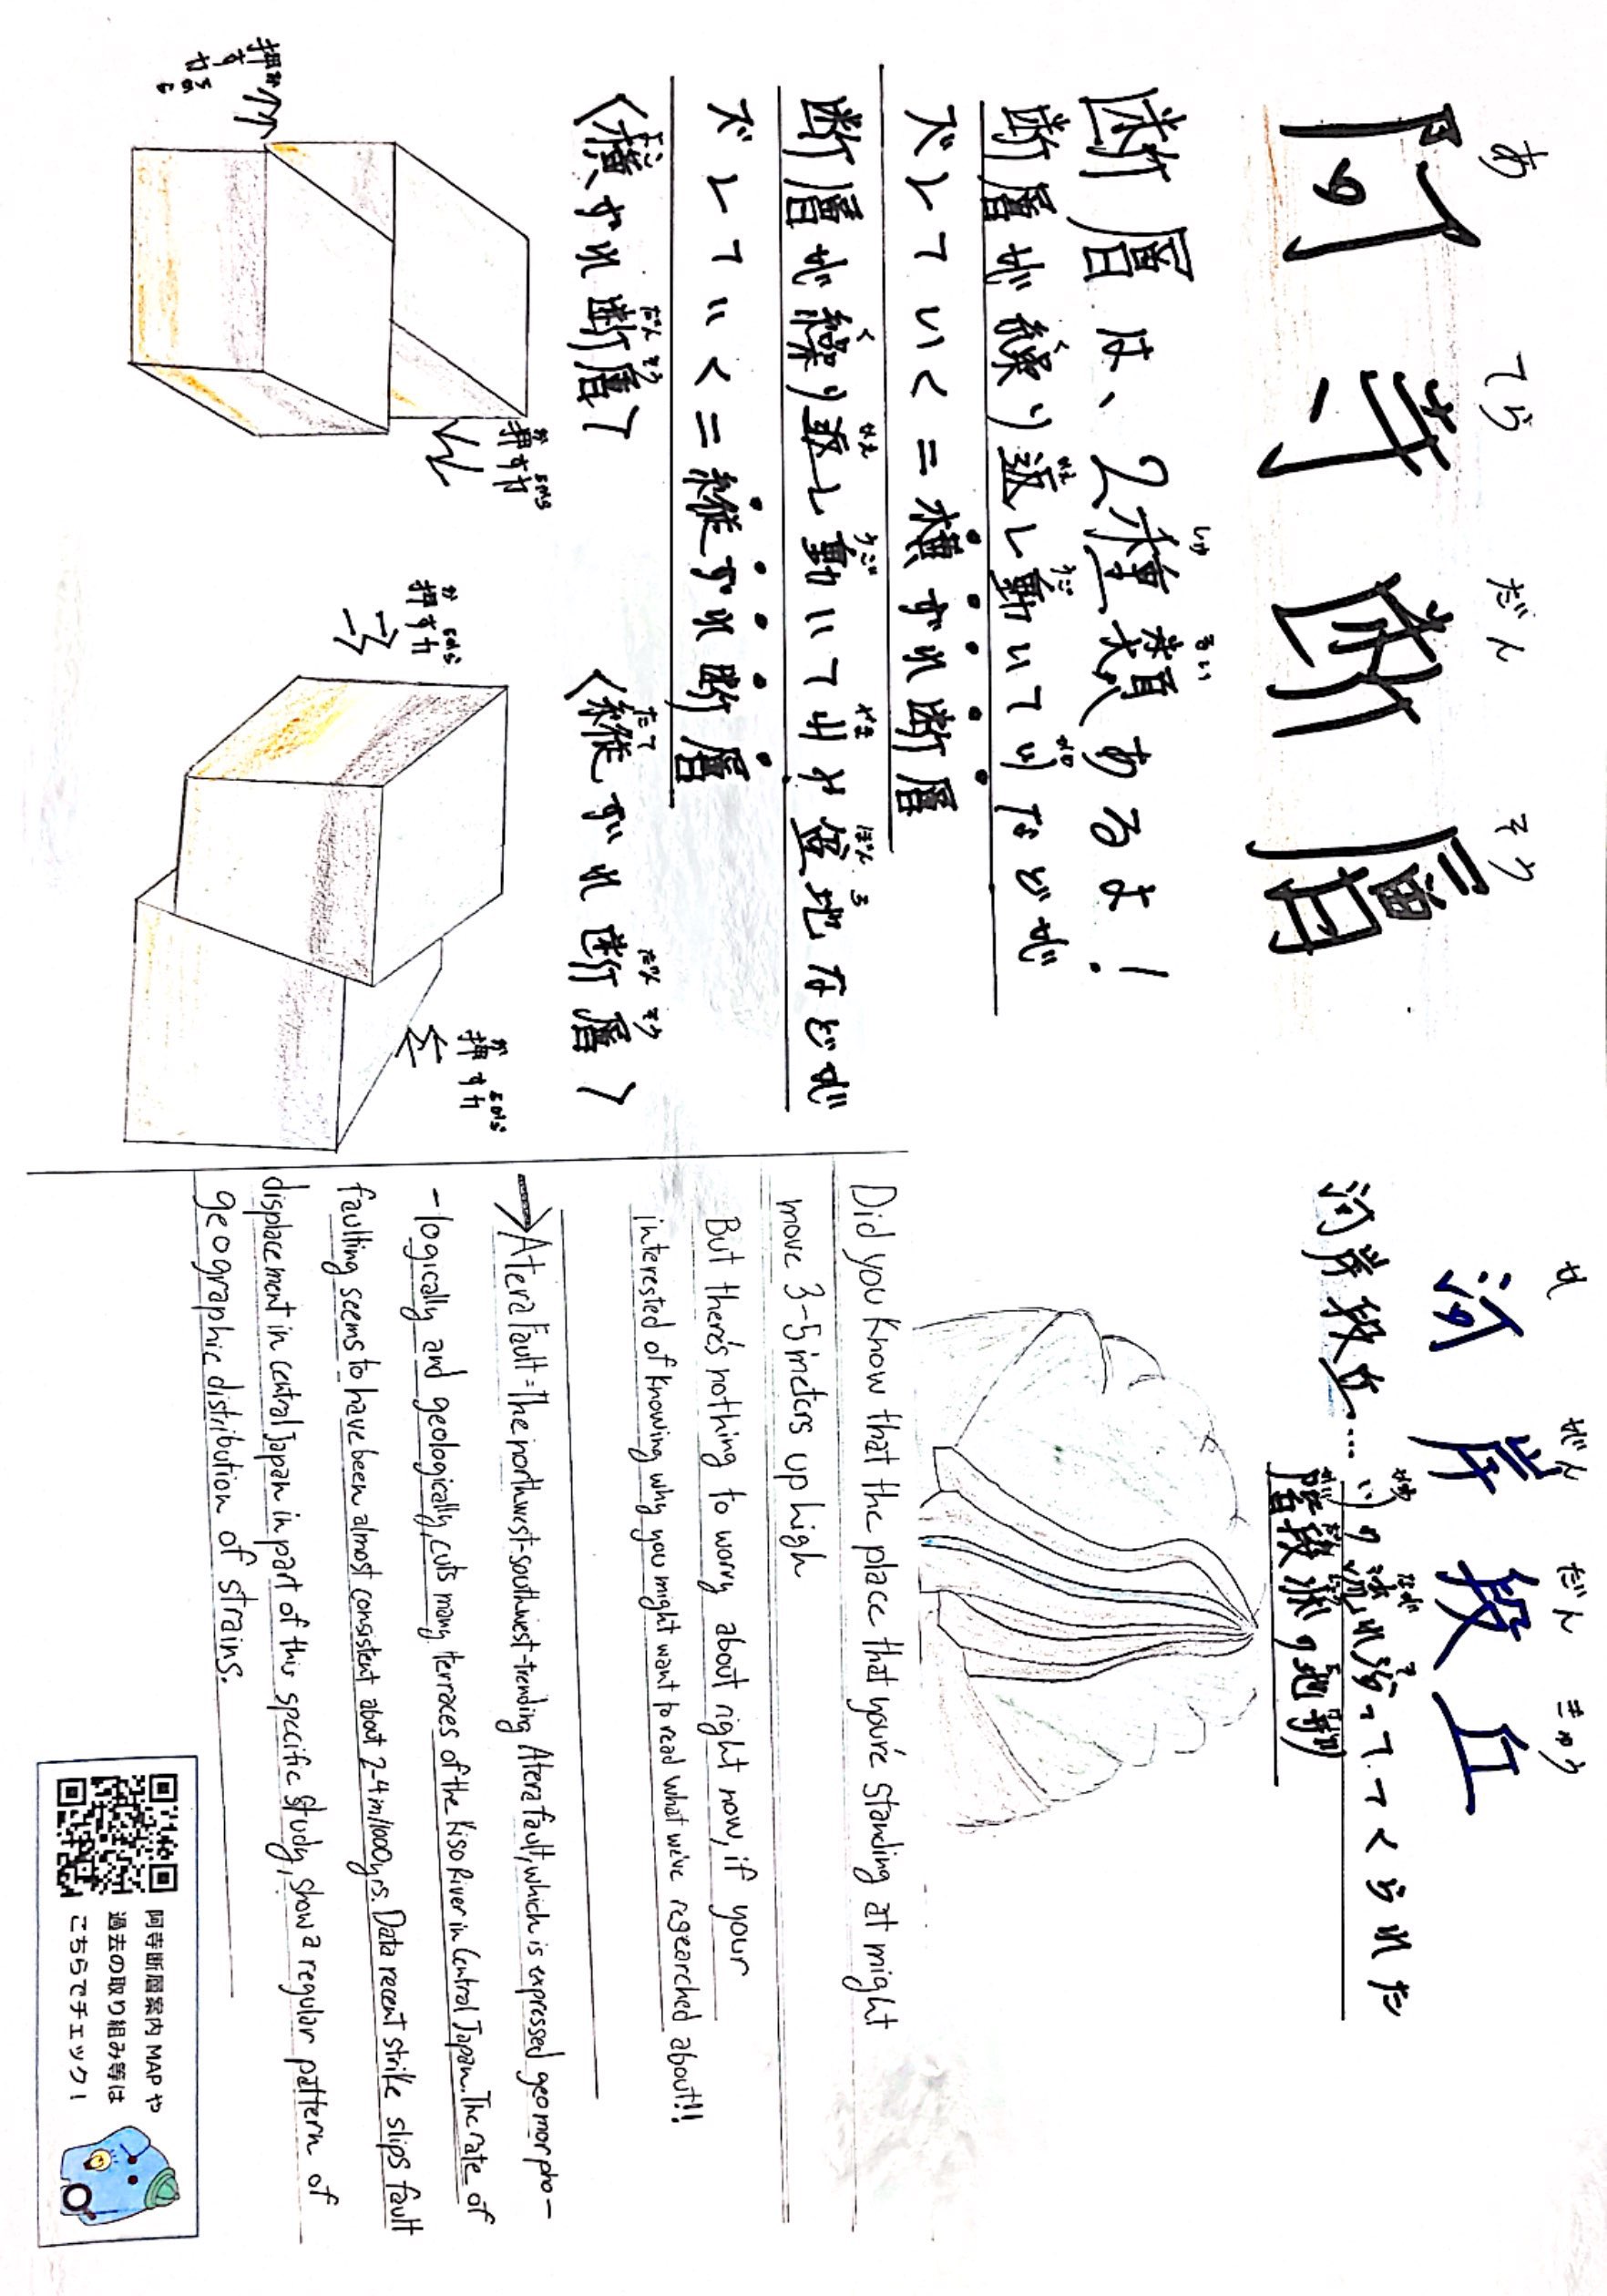 あ てら だん そう
阿寺断層
断層は、2種類あるよ!
しゅ るい
断層が繰り返し動いて川などが
く かえ うご かわ
ズレていく=横ずれ断層
断層が繰り返し動いて山や盆地などが
く かえ うご やま ぼん ち
ズレていく=縦ずれ断層
〈横ずれ断層〉
よこ だん そう
押す力
押す力
ちから
〈縦ずれ断層〉
たて だん そう
押す力
ちから
押す力
ちから
か がん だん きゅう
河岸段丘
河岸段丘…川の流れが沿ってつくられた
階段状の地形
Did you know that the place that you're standing at might
move 3-5 meters up high
But there's nothing to worry about right now, if your
interested of knowing why you might want to read what we've researched about!!!
→Atera Fault=The northwest-southwest-trending Atera fault, which is expressed geomorpho-
-logically and geologically, cuts many terraces of the Kiso River in Central Japan. The rate of
faulting seems to have been almost consistent about 2-4m/1000yrs. Data recent strike slips fault
displacement in central Japan in part of this specific study, show a regular pattern of
geographic distribution of strains.
阿寺断層案内 MAP や
過去の取り組み等は
こちらでチェック!